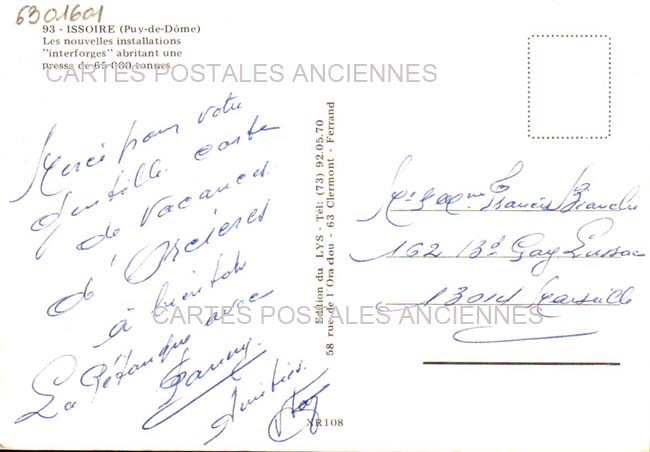 6301601
93 - ISSOIRE (Puy-de-Dôme)
Les nouvelles installations
"interforges" abritant une
presse de 65 000 tonnes
CARTES POSTALES ANCIENNES
Merci pour votre
gentille carte
de vacances
d'Orcières
à bientôt
La Pétanque avec
Fanny
Amitiés.
Edition du LYS - Tél: (73) 92.05.70
58 rue de l'Oradou - 63 Clermont - Ferrand
XR108
Francis Bianchi
162 Bd Gay Lussac
13014 Marseille
CARTES POSTALES ANCIENNES